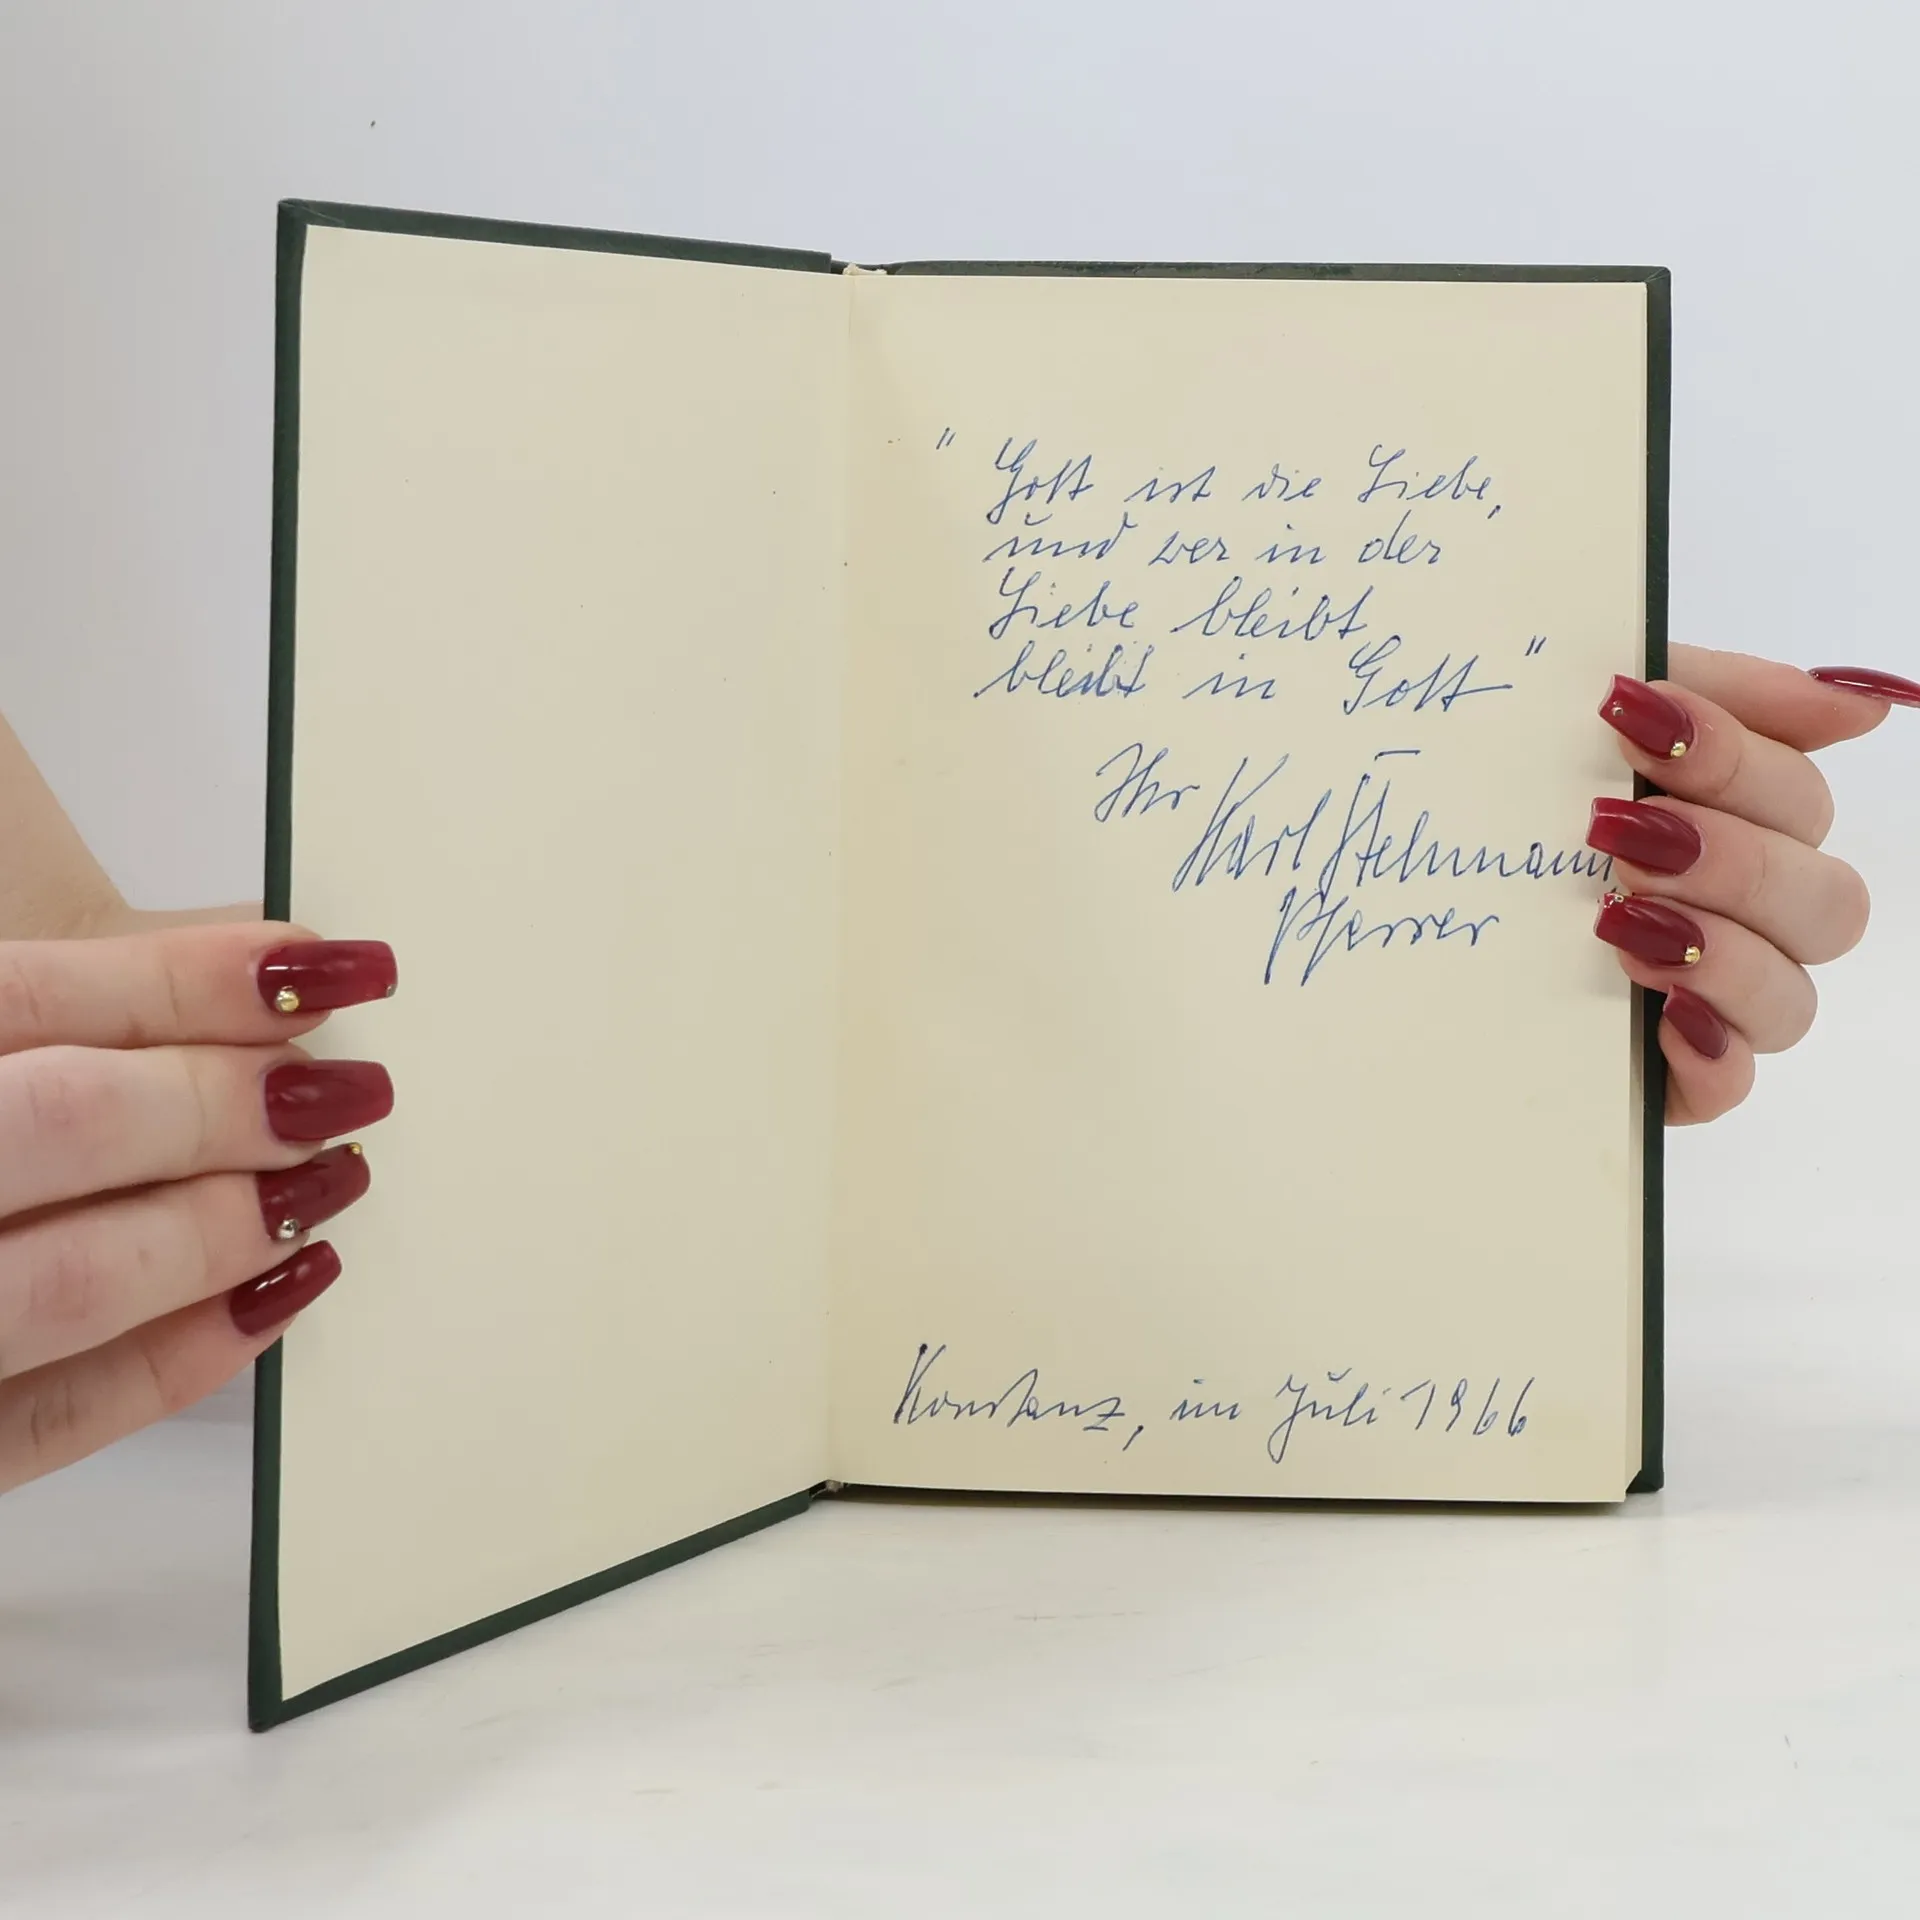 " Gott ist die Liebe,
und wer in der
Liebe bleibt
bleibt in Gott "
Ihr Karl Stehmann
Pfarrer
Konstanz, im Juli 1966